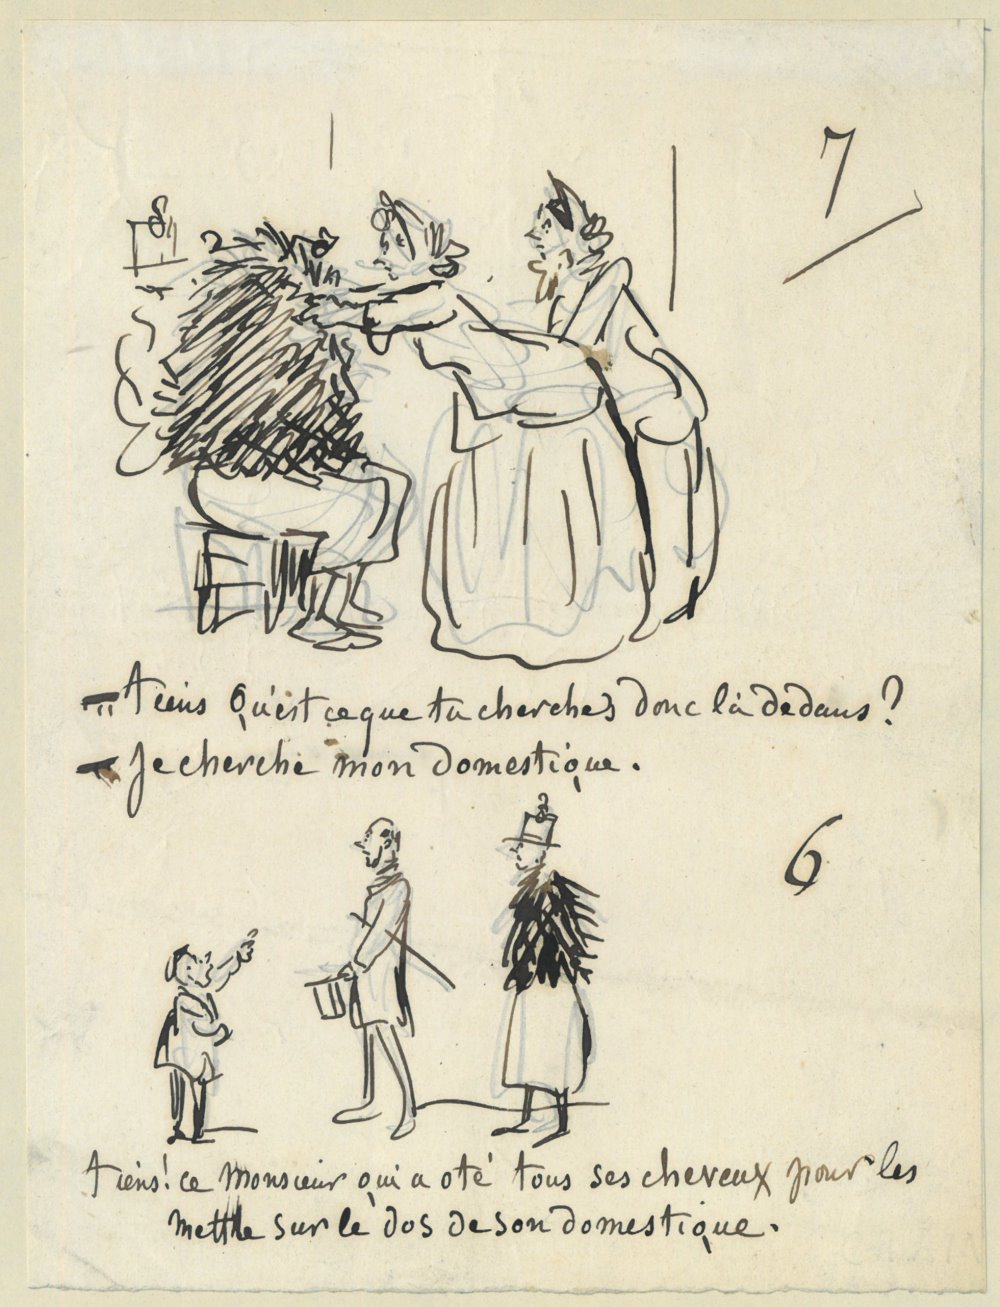 7
— Tiens qu'est ce que tu cherches donc là dedans ?
— Je cherche mon domestique.
6
Tiens ! ce Monsieur qui a oté tous ses cheveux pour les
mettre sur le dos de son domestique.